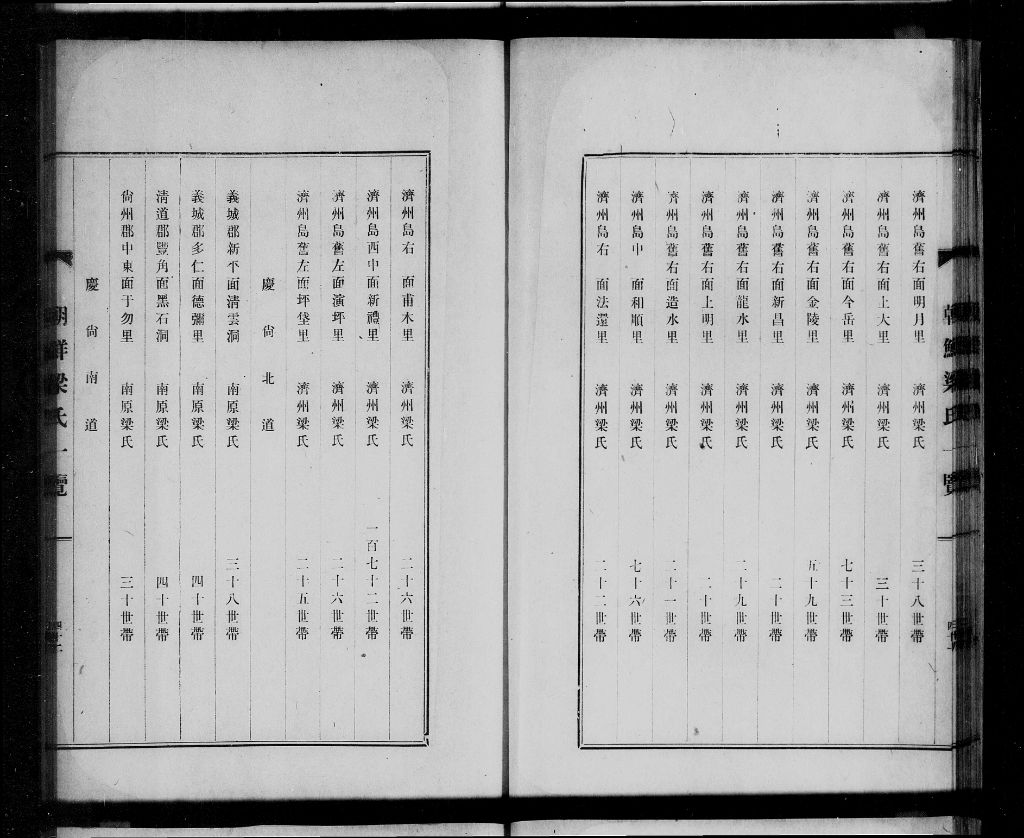 濟州島舊右面明月里 濟州梁氏 三十八世帶
濟州島舊右面上大里 濟州梁氏 三十世帶
濟州島舊右面今岳里 濟州梁氏 七十三世帶
濟州島舊右面金陵里 濟州梁氏 五十九世帶
濟州島舊右面新昌里 濟州梁氏 二十世帶
濟州島舊右面龍水里 濟州梁氏 二十九世帶
濟州島舊右面上明里 濟州梁氏 二十世帶
濟州島舊右面造水里 濟州梁氏 二十一世帶
濟州島中 面和順里 濟州梁氏 七十六世帶
濟州島右 面法還里 濟州梁氏 二十二世帶
濟州島右 面甫木里 濟州梁氏 二十六世帶
濟州島西中面新禮里 濟州梁氏 一百七十二世帶
濟州島舊左面演坪里 濟州梁氏 二十六世帶
濟州島舊左面坪垈里 濟州梁氏 二十五世帶
慶尙北道
義城郡新平面淸雲洞 南原梁氏 三十八世帶
義城郡多仁面德彌里 南原梁氏 四十世帶
淸道郡豐角面黑石洞 南原梁氏 四十世帶
尙州郡中東面于勿里 南原梁氏 三十世帶
慶尙南道
朝鮮梁氏一覽